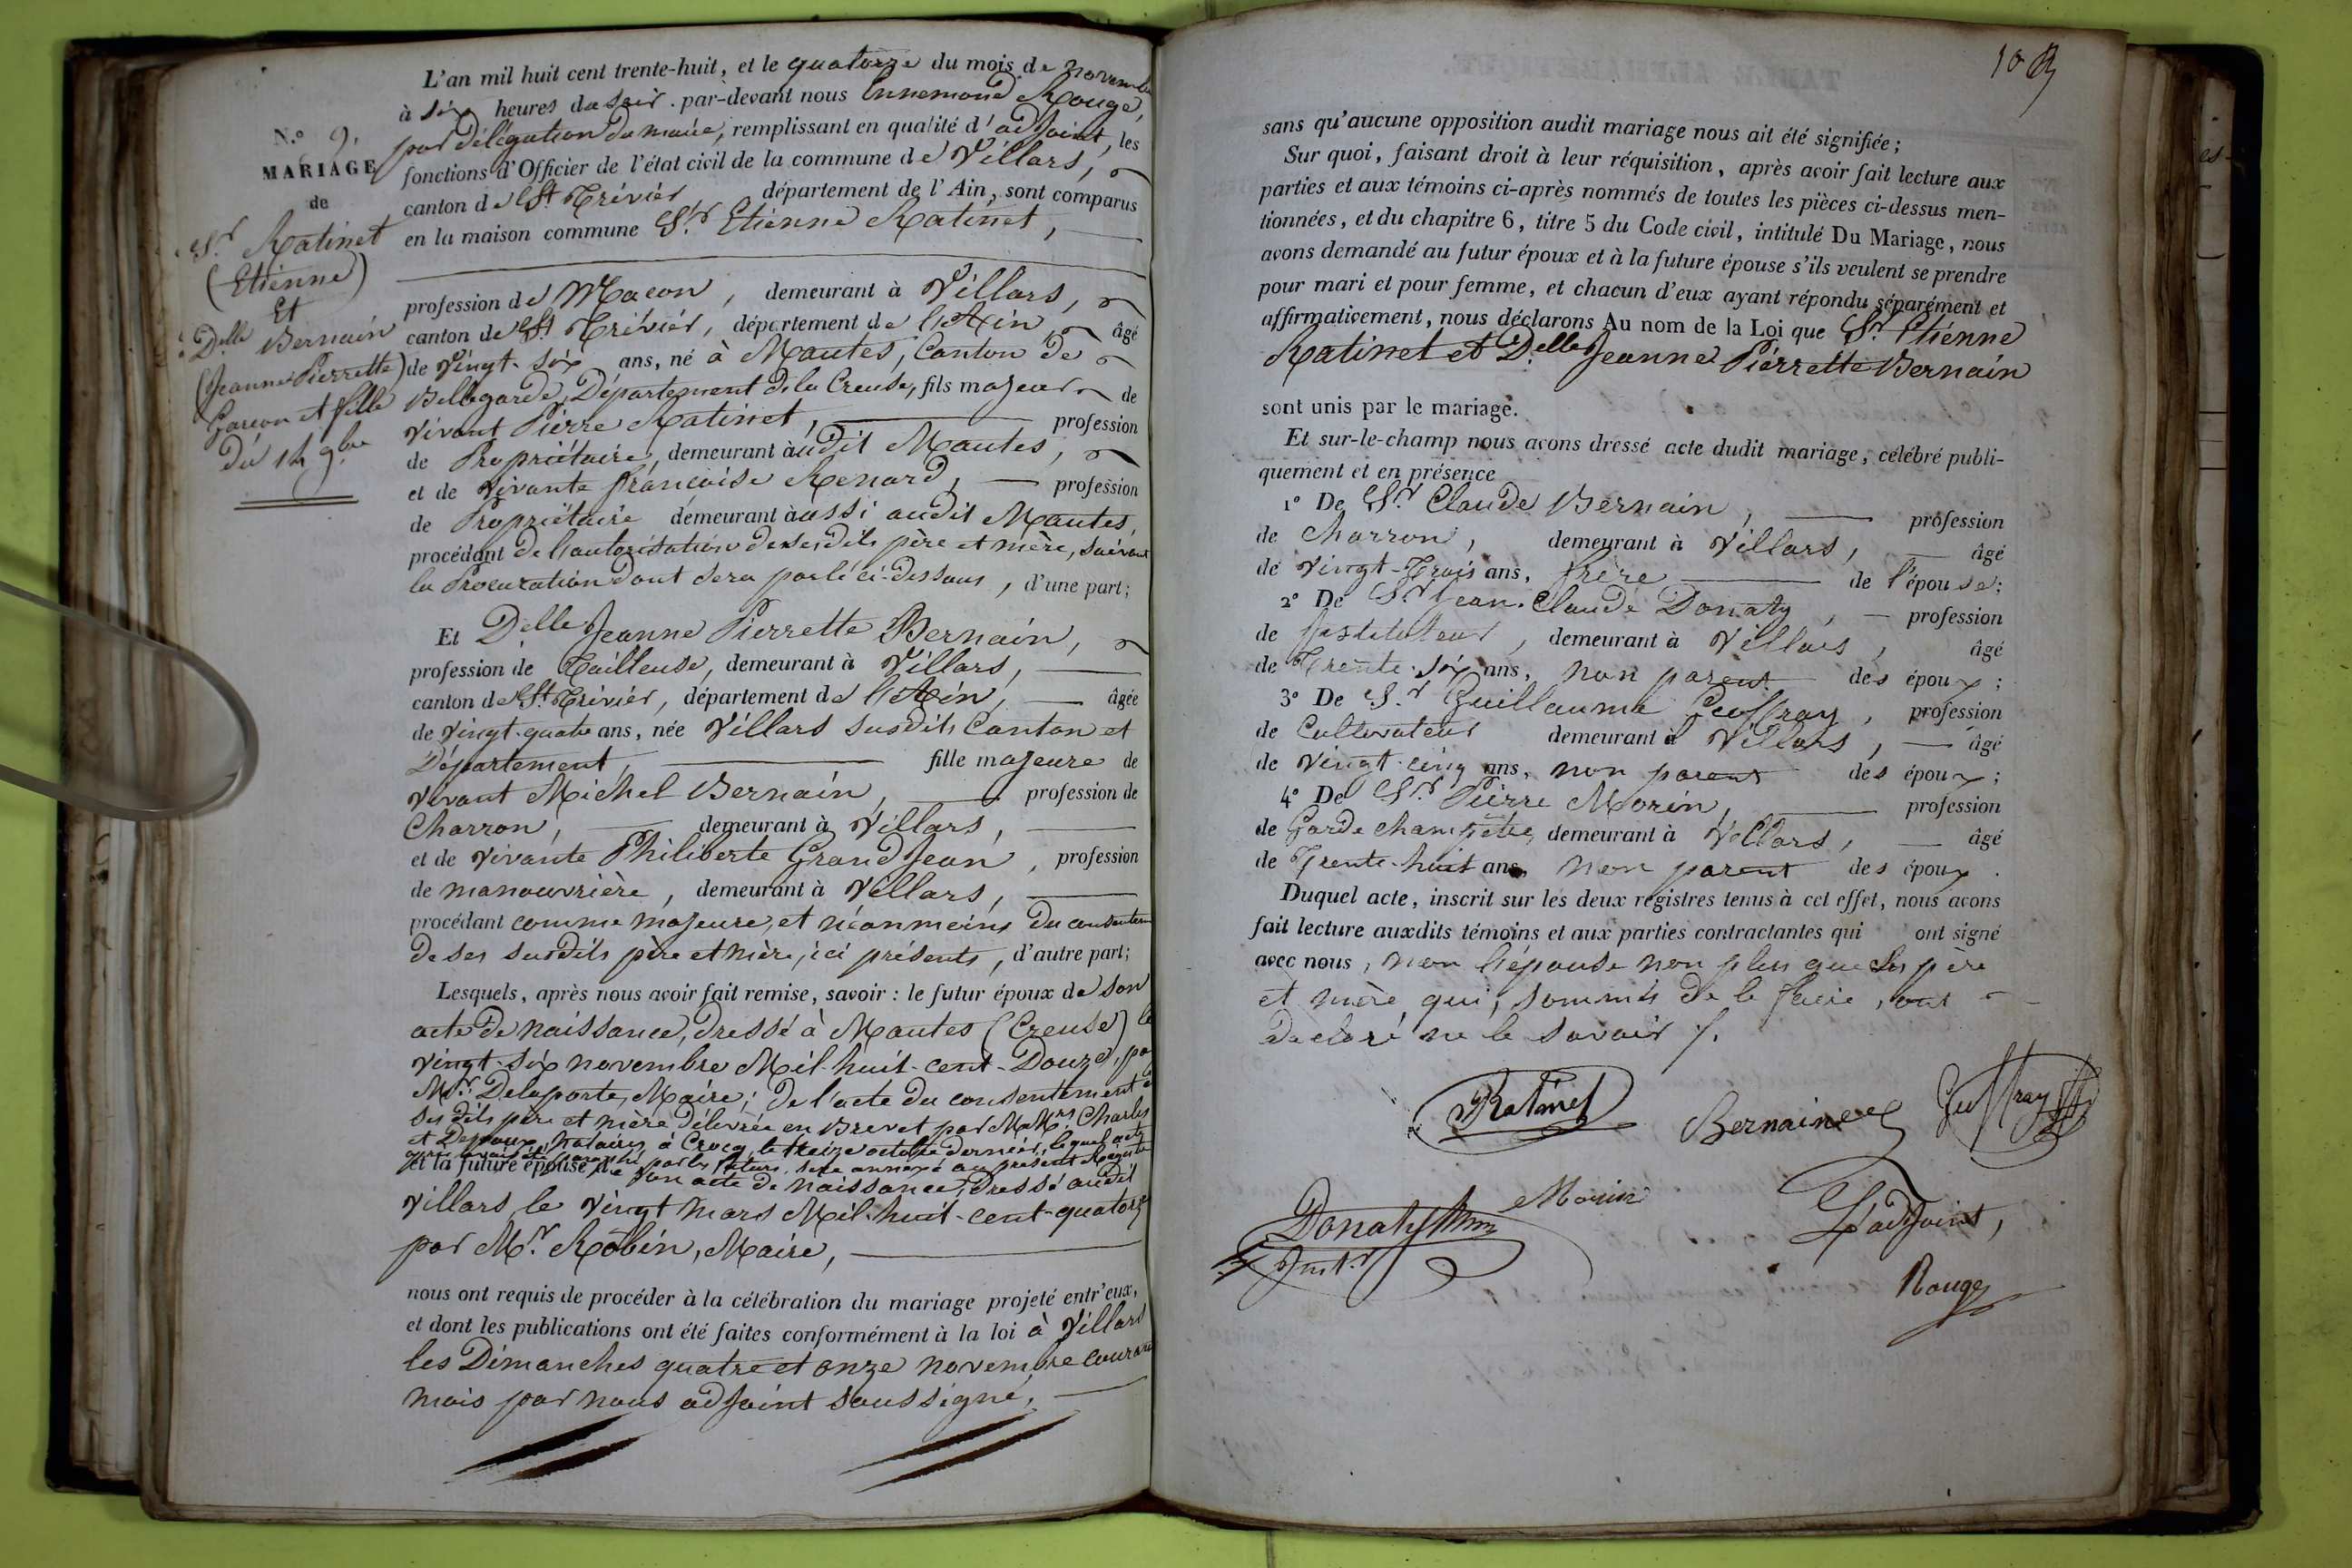 N.º 9.
MARIAGE
de
Sr. Ratinet
(Etienne)
Et
Delle Bernain
(Jeanne Pierrette)
Garcon et fille
Du 14 9.bre
L'an mil huit cent trente-huit, et le quatorze du mois de novembre
à six heures du soir. par-devant nous Ennemond Rouge,
par délégation du maire, remplissant en qualité d'adjoint, les
fonctions d'Officier de l'état civil de la commune de Villars,
canton de St. Trivier département de l'Ain, sont comparus
en la maison commune Sr. Etienne Ratinet,
profession de Macon, demeurant à Villars,
canton de St. Trivier, département de l'Ain, âgé
de Vingt-six ans, né à Mautes, Canton de
Bellegarde, Département de la Creuse, fils majeur de
vivant Pierre Ratinet, profession
de Propriétaire, demeurant àudit Mautes,
et de vivante françoise Renard, profession
de Propriétaire demeurant àaussi audit Mautes,
procédant de l'autorisation de sesdits père et mère, suivant
la Procuration dont sera parlé ci-dessous, d'une part;
Et Delle Jeanne Pierrette Bernain,
profession de Tailleuse, demeurant à Villars,
canton de St. Trivier, département de l'Ain, âgée
de vingt-quatre ans, née Villars susdits Canton et
Département, fille majeure de
vivant Michel Bernain, profession de
Charron, demeurant à Villars,
et de vivante Philiberte GrandJean, profession
de manouvrière, demeurant à Villars,
procédant comme majeure, et néanmoins du consentem
de ses susdits père et mère, ici présents, d'autre part;
Lesquels, après nous avoir fait remise, savoir : le futur époux de son
acte de naissance, dressé à Mautes (Creuse) le
vingt-six novembre Mil-huit-cent-Douze, par
Mr. Delaporte, Maire; De l'acte du consentement de
ses dits père et mère délivrée en Brevet par MMrs. Charles
et Desfoux, Notaires à Crocq, le treize octobre dernier, lequel acte
après avoir été paraphé par les futurs sera annexé au présent Registre
et la future épouse de son acte de naissance, Dressé audit
Villars, le Vingt mars Mil-huit-cent-quatorze
par Mr. Robin, Maire,
nous ont requis de procéder à la célébration du mariage projeté entr'eux,
et dont les publications ont été faites conformément à la loi à Villars
les Dimanches quatre et onze novembre courant
mois par nous adjoint soussigné,
sans qu'aucune opposition audit mariage nous ait été signifiée;
Sur quoi, faisant droit à leur réquisition, après avoir fait lecture aux
parties et aux témoins ci-après nommés de toutes les pièces ci-dessus men-
tionnées, et du chapitre 6, titre 5 du Code civil, intitulé Du Mariage, nous
avons demandé au futur époux et à la future épouse s'ils veulent se prendre
pour mari et pour femme, et chacun d'eux ayant répondu séparément et
affirmativement, nous déclarons Au nom de la Loi que Sr. Etienne
Ratinet et Delle Jeanne Pierrette Bernain
sont unis par le mariage.
Et sur-le-champ nous avons dressé acte dudit mariage, célébré publi-
quement et en présence
1º De Sr. Claude Bernain, profession
de Charron, demeurant à Villars, âgé
de Vingt-Trois ans, frère de l'épouse;
2º De Sr. Jean-Claude Donaty, profession
de Instituteur, demeurant à Villars, âgé
de Trente-six ans, non parent des époux;
3º De Sr. Guillaume Geoffray, profession
de Cultivateur demeurant à Villars, âgé
de Vingt-cinq ans, non parent des époux;
4º De Sr. Pierre Morin, profession
de Garde champêtre, demeurant à Villars, âgé
de Trente-huit ans, non parent des époux.
Duquel acte, inscrit sur les deux registres tenus à cet effet, nous avons
fait lecture auxdits témoins et aux parties contractantes qui ont signé
avec nous, non l'épouse non plus que ses père
et mère, qui, sommés de le faire, ont
déclaré ne le savoir /.
Ratinet
Bernain
Geoffray
Donaty
Morin
Inst.r
L'adjoint,
Rouge